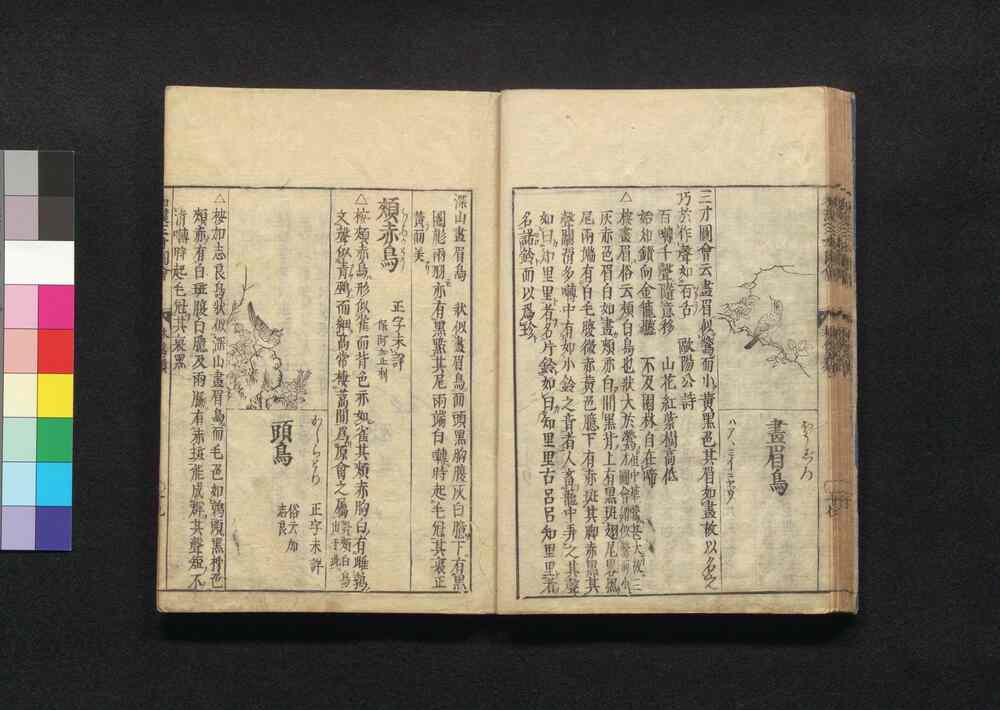 畫眉鳥
ほゝじろ
三才圖會云畫眉似鶯而小黄黒色其眉如畫故以名之
巧於作聲如百舌　歐陽公詩
百囀千聲隨意移　山花紅紫樹高低
始知鎖向金籠聽　不及園林自在啼
△按畫眉俗云頰白鳥也狀大於鶯
灰赤色眉白如畫頰亦白間黒背上有黒斑翅尾黒
尾兩端有白毛腹微赤黄色臆下有赤斑其脚赤黒其
聲關滑多囀中有如小鈴之音者人畜籠中弄之其聲
如曰知里里者名片鈴如曰知里里古呂呂知里里者
名諸鈴而以爲珍
深山畫眉鳥　狀似畫眉鳥而頭黒胸腹灰白臆下有黒
圓彪兩羽亦有黒㸃其尾兩端白囀時起毛冠其裏正
黄而美
頰赤鳥
正字未詳
保阿加止利
△按頰赤鳥形似雀而背色亦如雀其頰赤胸白有雌鶉
文聲似青鵐而細高常棲蒿間爲原會之屬
頭鳥
かしらとり
正字未詳
俗云加
志良
△按加志良鳥狀似深山畫眉鳥而毛色如鶉頭黒柹色
頰赤有白斑腹白臆及兩脇有赤斑能成群其聲短不
清囀時起毛冠其裏黒